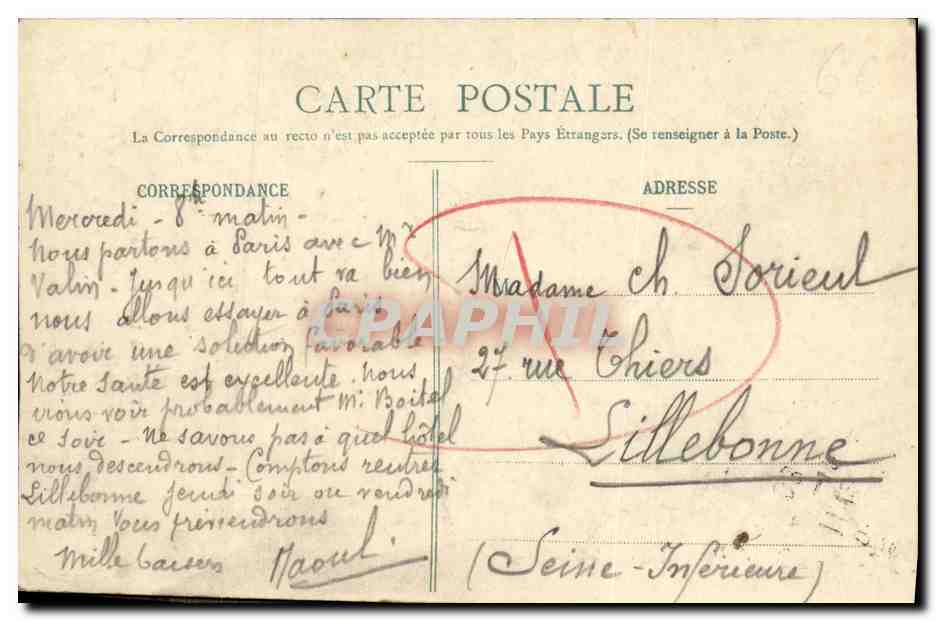 CARTE POSTALE
La Correspondance au recto n'est pas acceptée par tous les Pays Étrangers. (Se renseigner à la Poste.)
CORRESPONDANCE
Mercredi - 8h matin -
Nous partons à Paris avec Mr
Valin - Jusqu'ici tout va bien
nous allons essayer à Paris
d'avoir une solution favorable
Notre santé est excellente. Nous
irons voir probablement Mr. Boitel
ce soir - Ne savons pas à quel hôtel
nous descendrons - Comptons rentrer
Lillebonne jeudi soir ou vendredi
matin Vous préviendrons
Mille baisers Raoul.
ADRESSE
Madame Ch. Sorieul
27. rue Thiers
Lillebonne
(Seine-Inférieure)
CPAPHIL